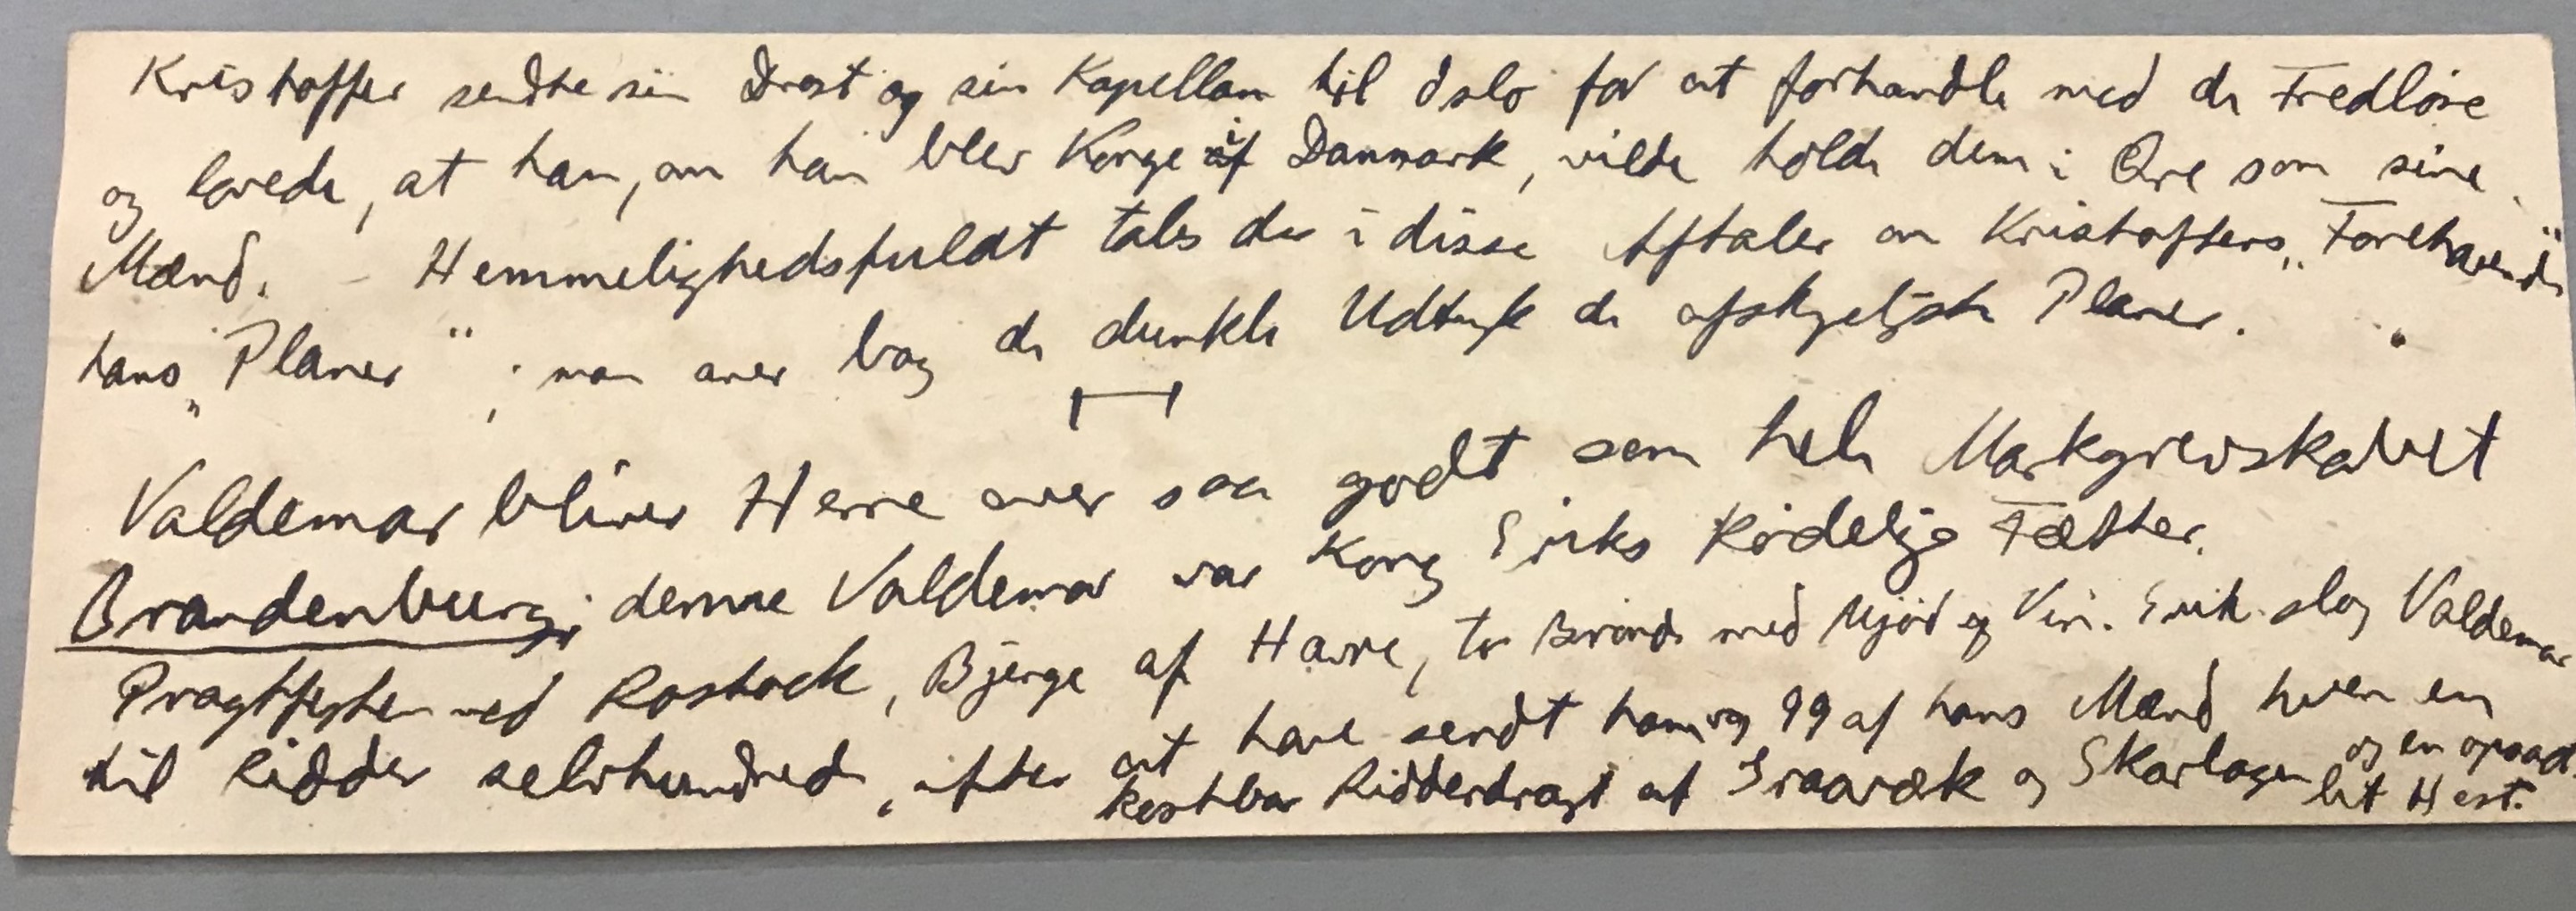 Kristoffer sendte sin Drost og sin Kapellan til Oslo for at forhandle med de Fredløse
og lovede, at han, om han blev Konge i Danmark, vilde holde dem i Ære som sine
Mænd. – Hemmelighedsfuldt tales der i disse Aftaler om Kristoffers „Forehavende"
hans „Planer"; man aner bag de dunkle Udtryk de afskyeligste Planer.
Valdemar bliver Herre over saa godt som hele Markgrevskabet
Brandenburg; denne Valdemar var Kong Eriks kødelige Fætter.
Pragtfesten ved Rostock, Bjerge af Havre, to Brønde med Mjød og Vin. Erik slog Valdemar
til Ridder selvhundrede, efter at have sendt ham og 99 af hans Mænd hver en
kostbar Ridderdragt af Graaværk og Skarlagen og en opsad
let Hest.